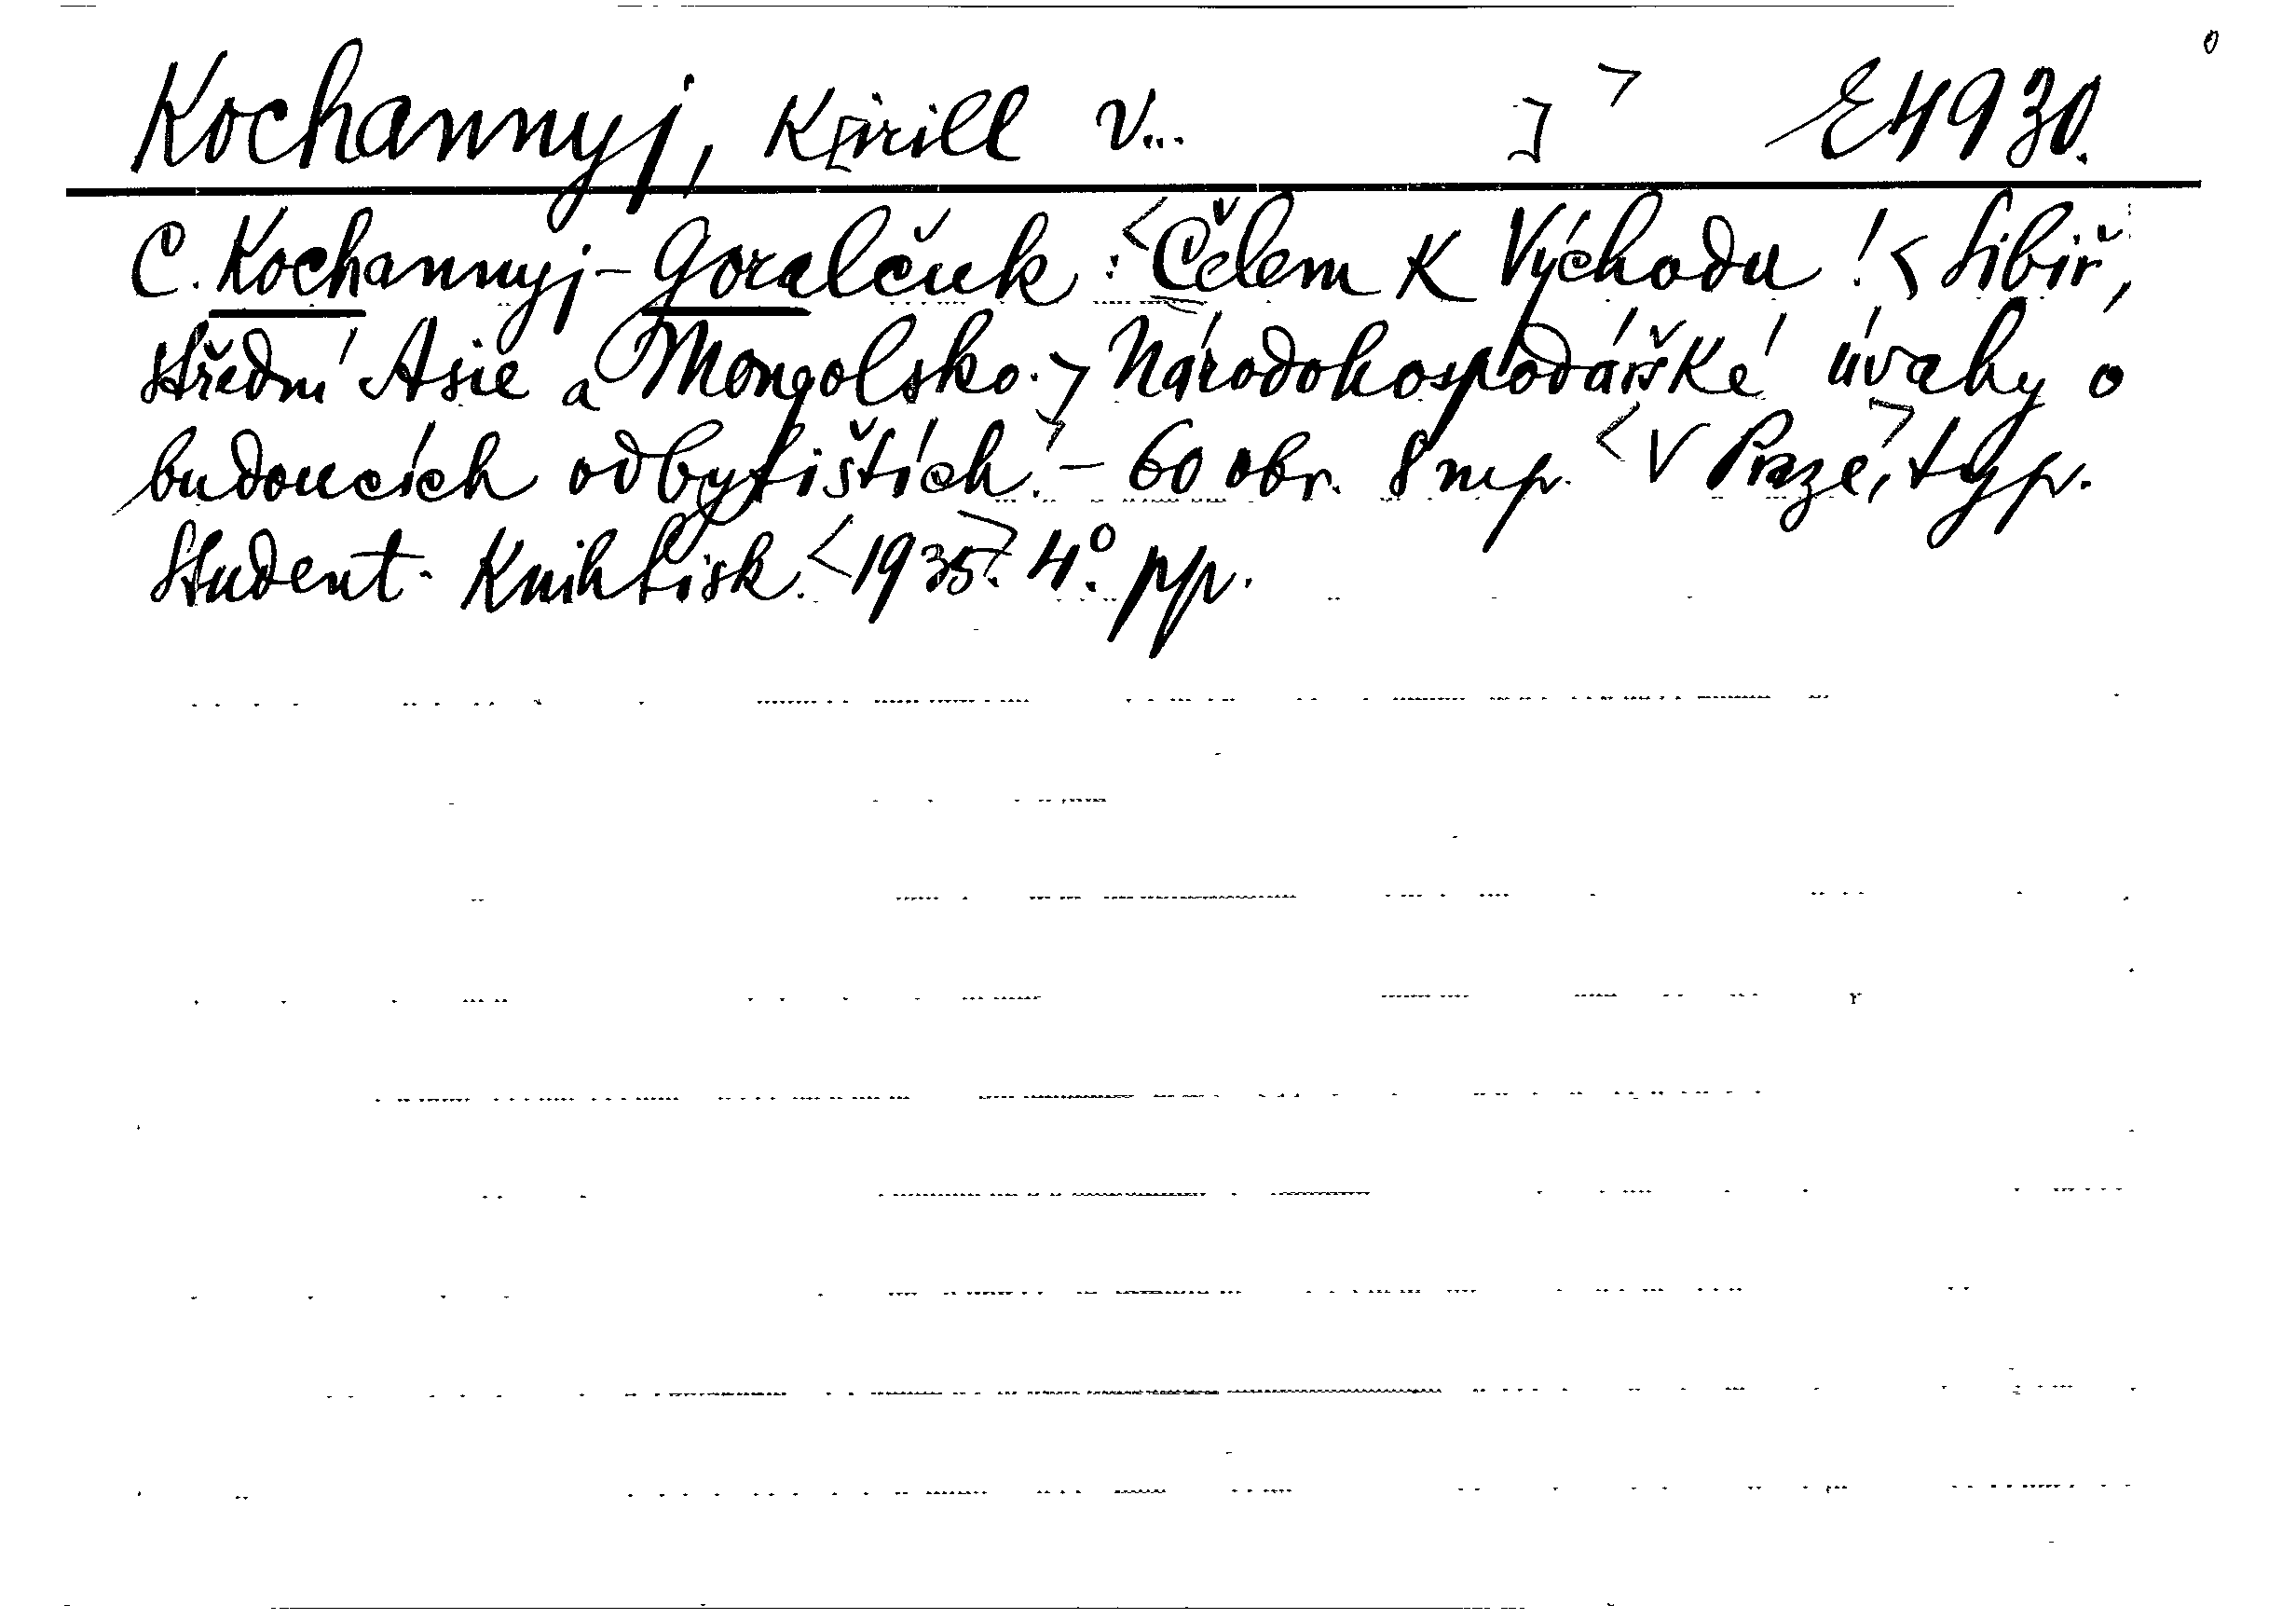 Kochannyj, K[irill V... ] > E4930.
C. Kochannyj-Goralčuk: <Čelem K Východu! < Sibiř,
střední Asie a Mongolsko. > Národohospodářské úvahy o
budoucích odbytištích. > – 60 obr. 8 mp. <V Praze, > typ.
Student. Knihtisk. <1935>. 4°. pp.